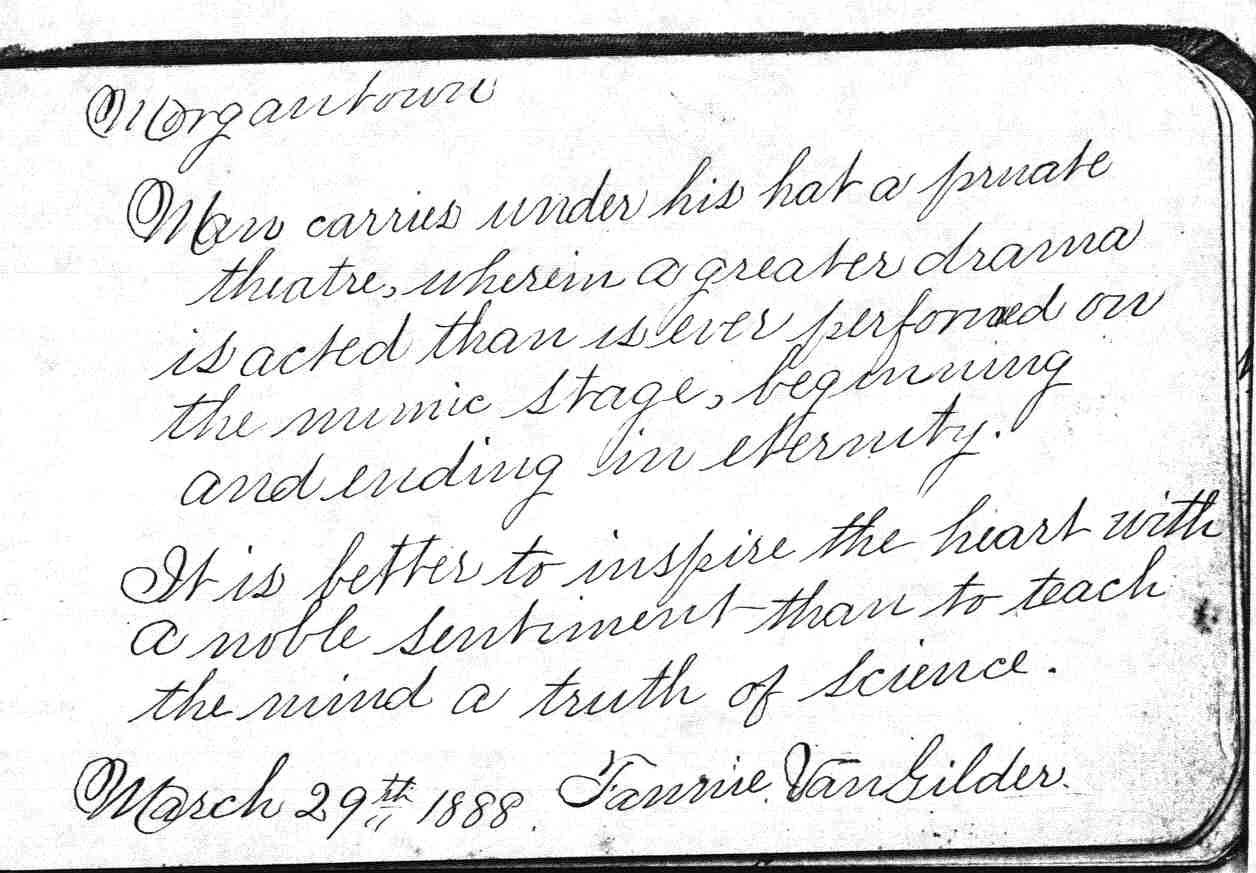 Morgantown
Man carries under his hat a private
theatre, wherein a greater drama
is acted than is ever performed on
the mimic stage, beginning
and ending in eternity.
It is better to inspire the heart with
a noble sentiment than to teach
the mind a truth of science.
March 29th 1888. Fannie VanGilder.